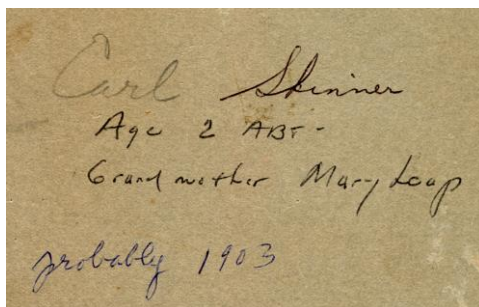 Carl Skinner
Age 2 ABT -
Grand mother Mary Loap
probably 1903